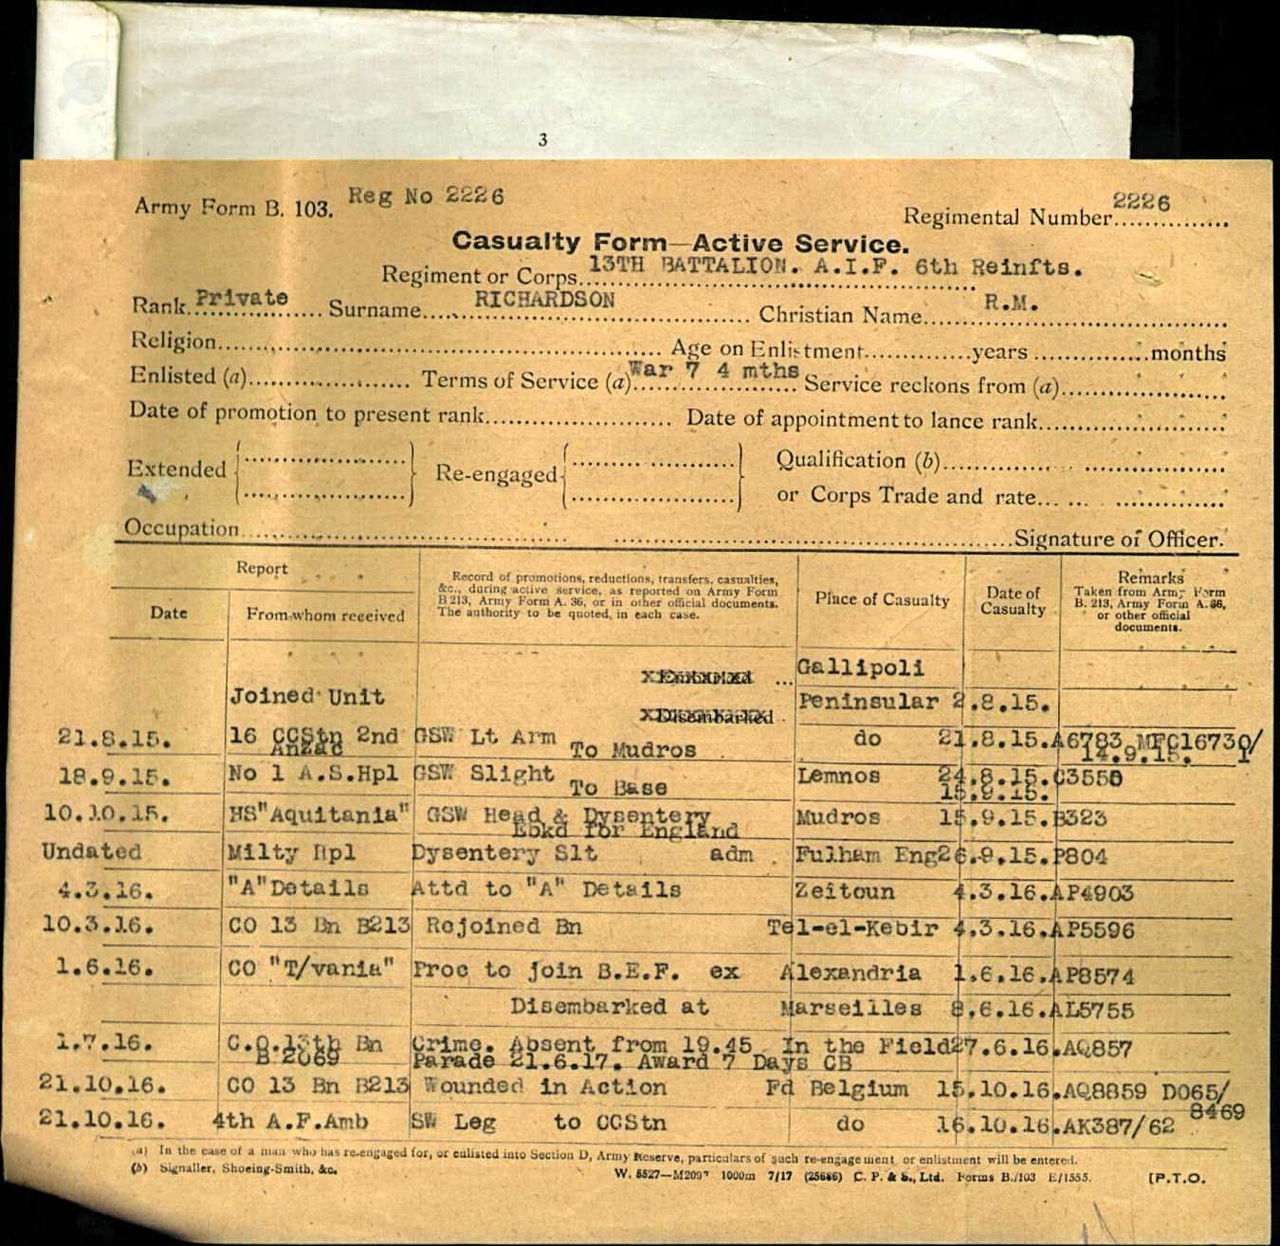 3
Army Form B. 103. Reg No 2226
Regimental Number 2226
Casualty Form—Active Service.
Regiment or Corps 13TH BATTALION. A.I.F. 6th Reinfts.
Rank Private Surname RICHARDSON Christian Name R.M.
Religion Age on Enlistment years months
Enlisted (a) Terms of Service (a) War 7 4 mths Service reckons from (a)
Date of promotion to present rank Date of appointment to lance rank
Extended Re-engaged Qualification (b)
or Corps Trade and rate
Occupation Signature of Officer.
Report
Date From whom received
Record of promotions, reductions, transfers, casualties,
&c., during active service, as reported on Army Form
B 213, Army Form A. 36, or in other official documents.
The authority to be quoted, in each case.
Place of Casualty
Date of
Casualty
Remarks
Taken from Army Form
B. 213, Army Form A.36,
or other official
documents.
Embarked ... Gallipoli
Joined Unit Peninsular 2.8.15.
Disembarked
21.8.15. 16 CCStn 2nd GSW Lt Arm do 21.8.15. A6783 MFC16730/
Anzac To Mudros 14.9.15. 1
18.9.15. No 1 A.S.Hpl GSW Slight Lemnos 24.8.15. C3550
To Base 15.9.15.
10.10.15. HS"Aquitania" GSW Head & Dysentery Mudros 15.9.15. B323
Ebkd for England
Undated Milty Hpl Dysentery Slt adm Fulham Eng 26.9.15. P804
4.3.16. "A"Details Attd to "A" Details Zeitoun 4.3.16. AP4903
10.3.16. CO 13 Bn B213 Rejoined Bn Tel-el-Kebir 4.3.16. AP5596
1.6.16. CO "T/vania" Proc to join B.E.F. ex Alexandria 1.6.16. AP8574
Disembarked at Marseilles 8.6.16. AL5755
1.7.16. C.O.13th Bn Crime. Absent from 19.45 In the Field 27.6.16. AQ857
B.2069 Parade 21.6.17. Award 7 Days CB
21.10.16. CO 13 Bn B213 Wounded in Action Fd Belgium 15.10.16. AQ8859 D065/
8469
21.10.16. 4th A.F.Amb SW Leg to CCStn do 16.10.16. AK387/62
(a) In the case of a man who has re-engaged for, or enlisted into Section D, Army Reserve, particulars of such re-engagement or enlistment will be entered.
(b) Signaller, Shoeing-Smith, &c.
W. 5527—M2097 1000m 7/17 (25686) C. P. & S., Ltd. Forms B./103 E/1555. [P.T.O.